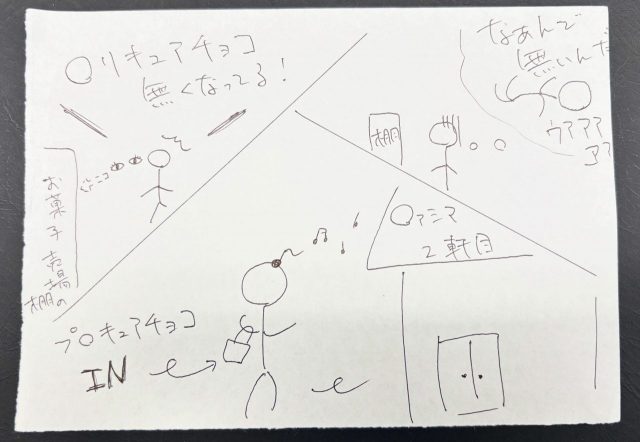 〇リキュアチョコ
無くなってる!
お菓子売場の
棚
なあんで
無いんだ
ウアアア
アア
棚
〇ァミマ
2軒目
プロキュアチョコ
IN